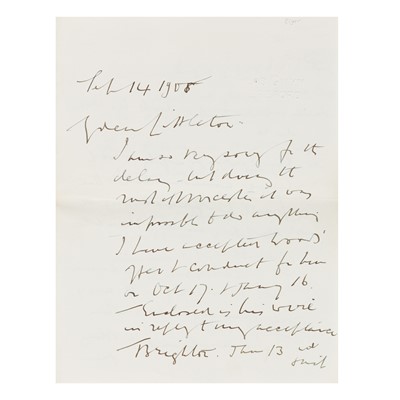 Sept 14 1908
Dear Littleton.
I am so very sorry for the
delay but during the
rush of Worcester it was
impossible to do anything
I have accepted Woods'
offer to conduct for him
on Oct 17. & Jany 16.
Enclosed is his wire
in reply to my acceptance
Brighton. Jan 13
suit